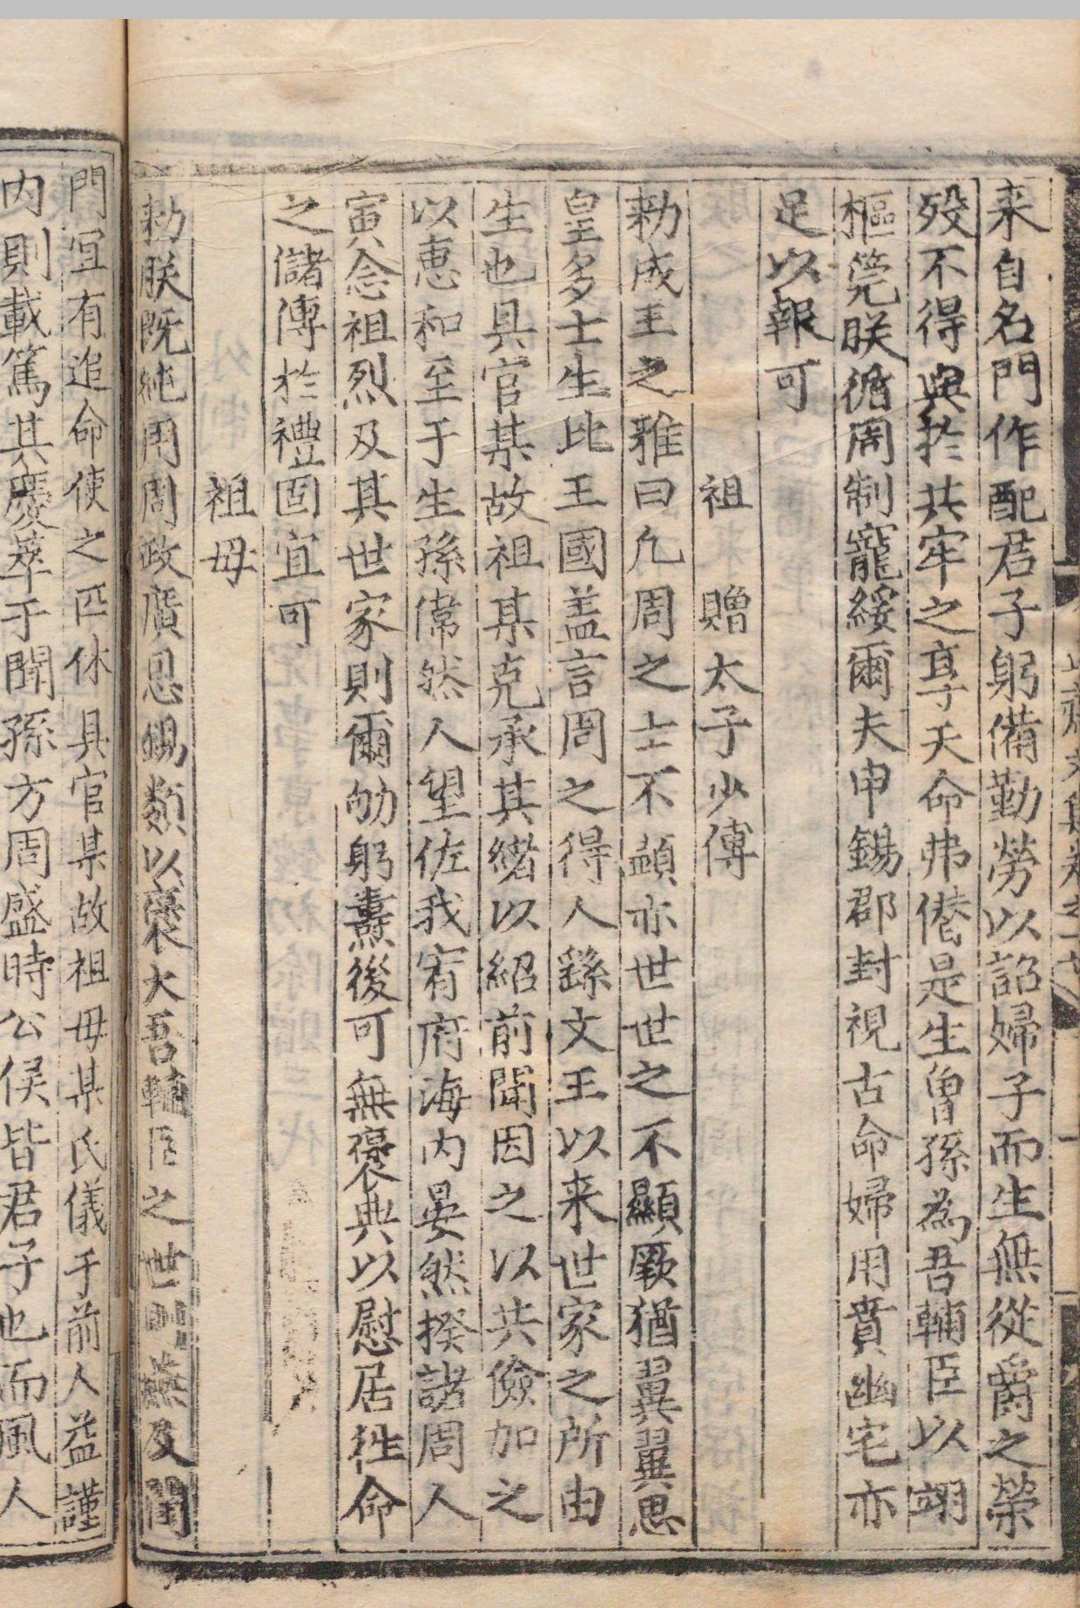 来自名門作配君子躬備勤勞以詔婦子而生無從爵之榮
歿不得與於共牢之享天命弗僭是生曾孫為吾輔臣以翊
樞筦朕循周制寵綏爾夫申錫郡封視古命婦用賁幽宅亦
足以報可
祖贈太子少傅
勑成王之雅曰凡周之士不顯亦世世之不顯厥猶翼翼思
皇多士生此王國盖言周之得人繇文王以来世家之所由
生也具官某故祖某克承其緒以紹前聞因之以共儉加之
以惠和至于生孫偉然人望佐我宥府海内晏然揆諸周人
寅念祖烈及其世家則爾劬躬燾後可無襃典以慰居徃命
之儲傅於禮固宜可
祖母
勑朕既純用周政廣恩錫類以襃大吾輔臣之世則燕及閨
門宜有追命使之匹休具官某故祖母某氏儀于前人益謹
内則載篤其慶萃于聞孫方周盛時公侯皆君子也而風人